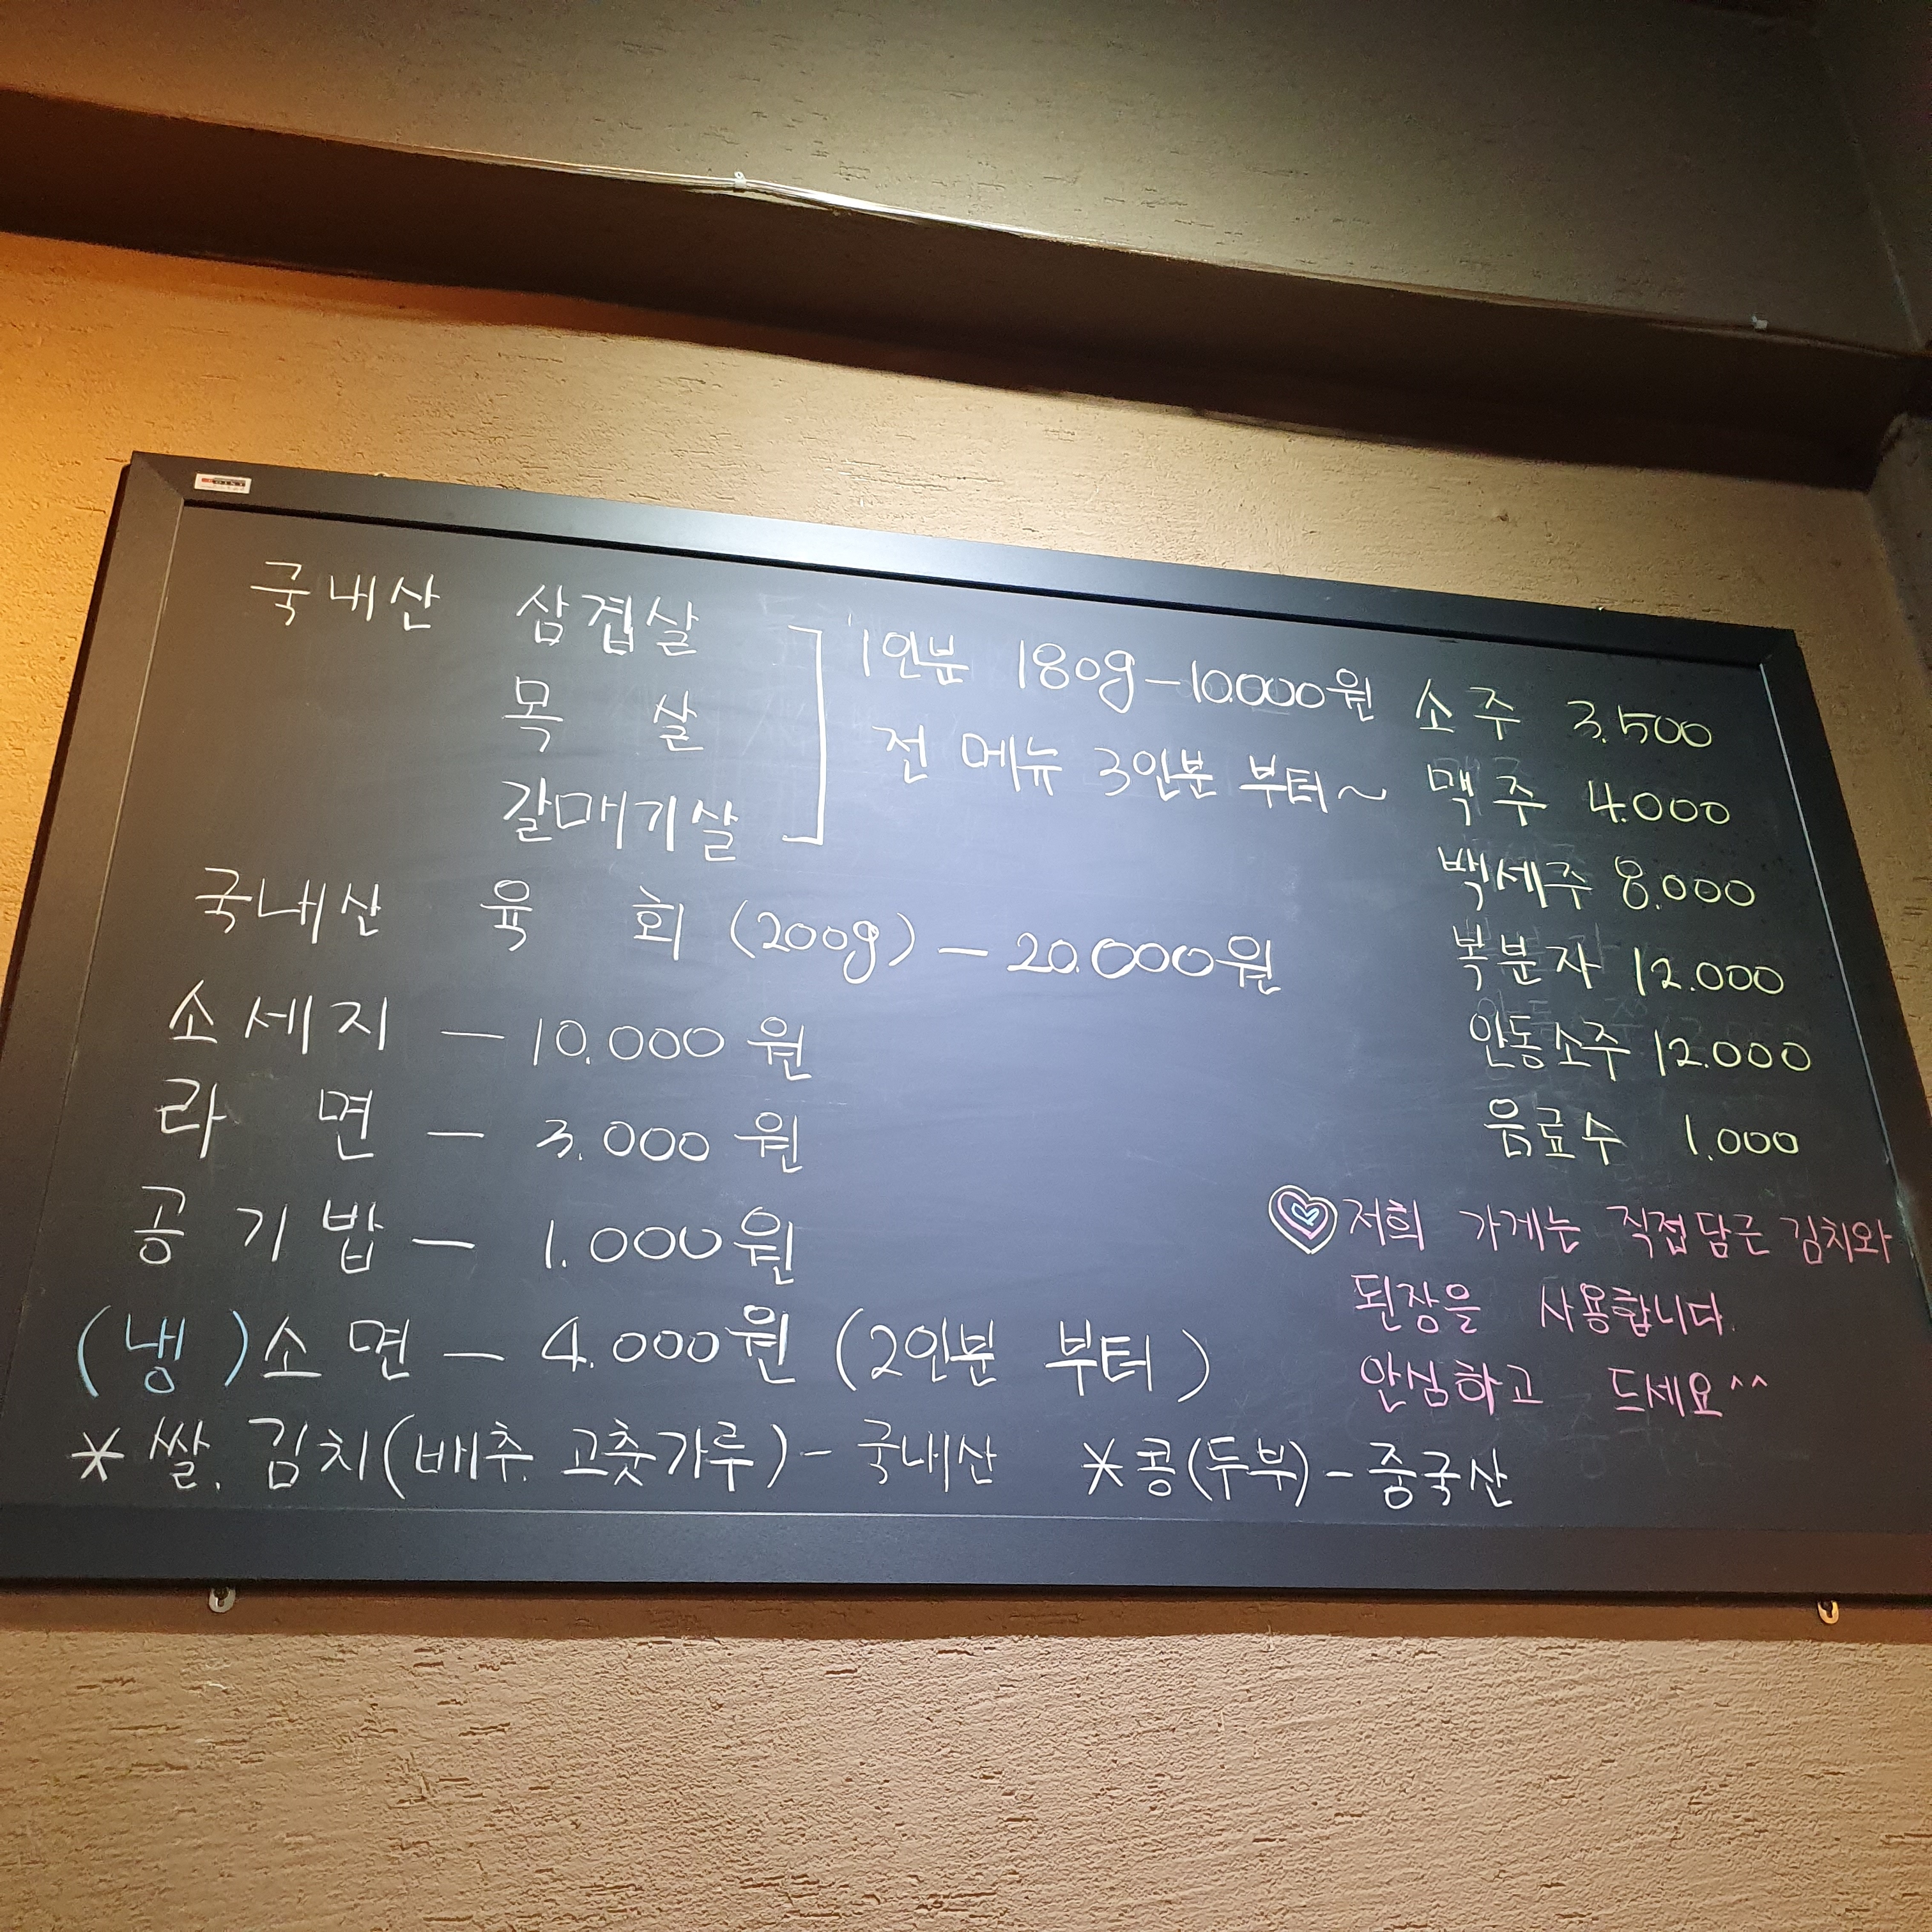 국내산 삼겹살
목 살
갈매기살
1인분 180g-10.000원
전 메뉴 3인분 부터~
국내산 육 회 (200g) - 20.000원
소세지 - 10.000원
라 면 - 3.000원
공기밥 - 1.000원
(냉)소면 - 4.000원 (2인분 부터)
*쌀. 김치(배추. 고춧가루) - 국내산 *콩(두부) - 중국산
소주 3.500
맥주 4.000
백세주 8.000
복분자 12.000
안동소주 12.000
음료수 1.000
저희 가게는 직접담근 김치와
된장을 사용합니다.
안심하고 드세요^^